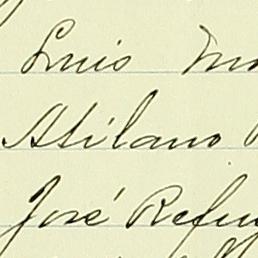 Luis Mo
Atilano
José Refu